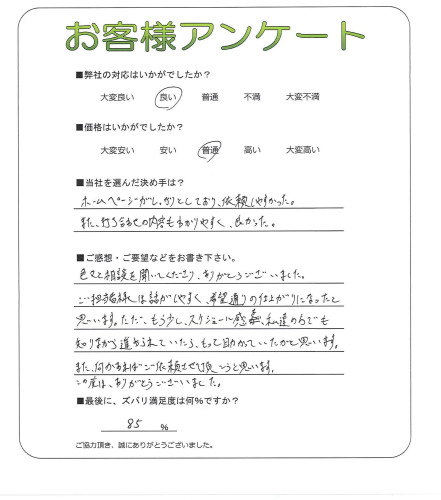 お客様アンケート
■弊社の対応はいかがでしたか?
大変良い 良い 普通 不満 大変不満
■価格はいかがでしたか?
大変安い 安い 普通 高い 大変高い
■当社を選んだ決め手は?
ホームページがしっかりとしており、依頼しやすかった。
また、打ち合わせの内容も分かりやすく、良かった。
■ご感想・ご要望などをお書き下さい。
色々と相談を聞いてくださり、ありがとうございました。
ご担当者様は話がしやすく、希望通りの仕上がりになったと
思います。ただ、もう少し、スケジュール感、私達の方でも
知りながら進められていたら、もって助かっていたかと思います。
また、何かあればご依頼させて頂こうと思います。
この度は、ありがとうございました。
■最後に、ズバリ満足度は何%ですか?
85 %
ご協力頂き、誠にありがとうございました。